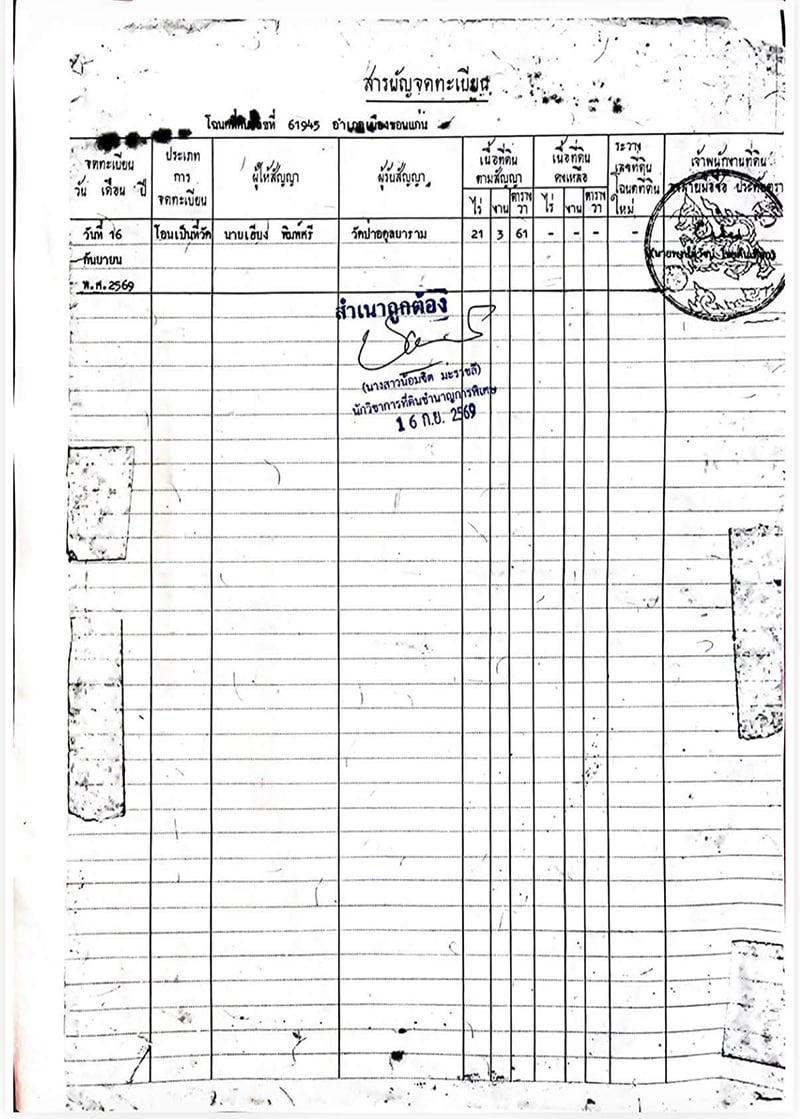 สารบัญจดทะเบียน
โฉนดที่ดินเลขที่ 61945 อำเภอเมืองขอนแก่น
จดทะเบียน
วัน เดือน ปี
ประเภท
การ
จดทะเบียน
ผู้ให้สัญญา
ผู้รับสัญญา
เนื้อที่ดิน
ตามสัญญา
ไร่ งาน ตาราง
วา
เนื้อที่ดิน
คงเหลือ
ไร่ งาน ตาราง
วา
ระวาง
เลขที่ดิน
โฉนดที่ดิน
ใหม่
เจ้าพนักงานที่ดิน
ลงลายมือชื่อ ประทับตรา
วันที่ 16 โอนเป็นที่วัด นายเฮียง พิมพ์ศรี วัดป่าอดุลยาราม 21 3 61 - - - -
กันยายน
พ.ศ.2569
สำเนาถูกต้อง
(นางสาวน้อมจิต มะราชลี)
นักวิชาการที่ดินชำนาญการพิเศษ
16 ก.ย. 2569